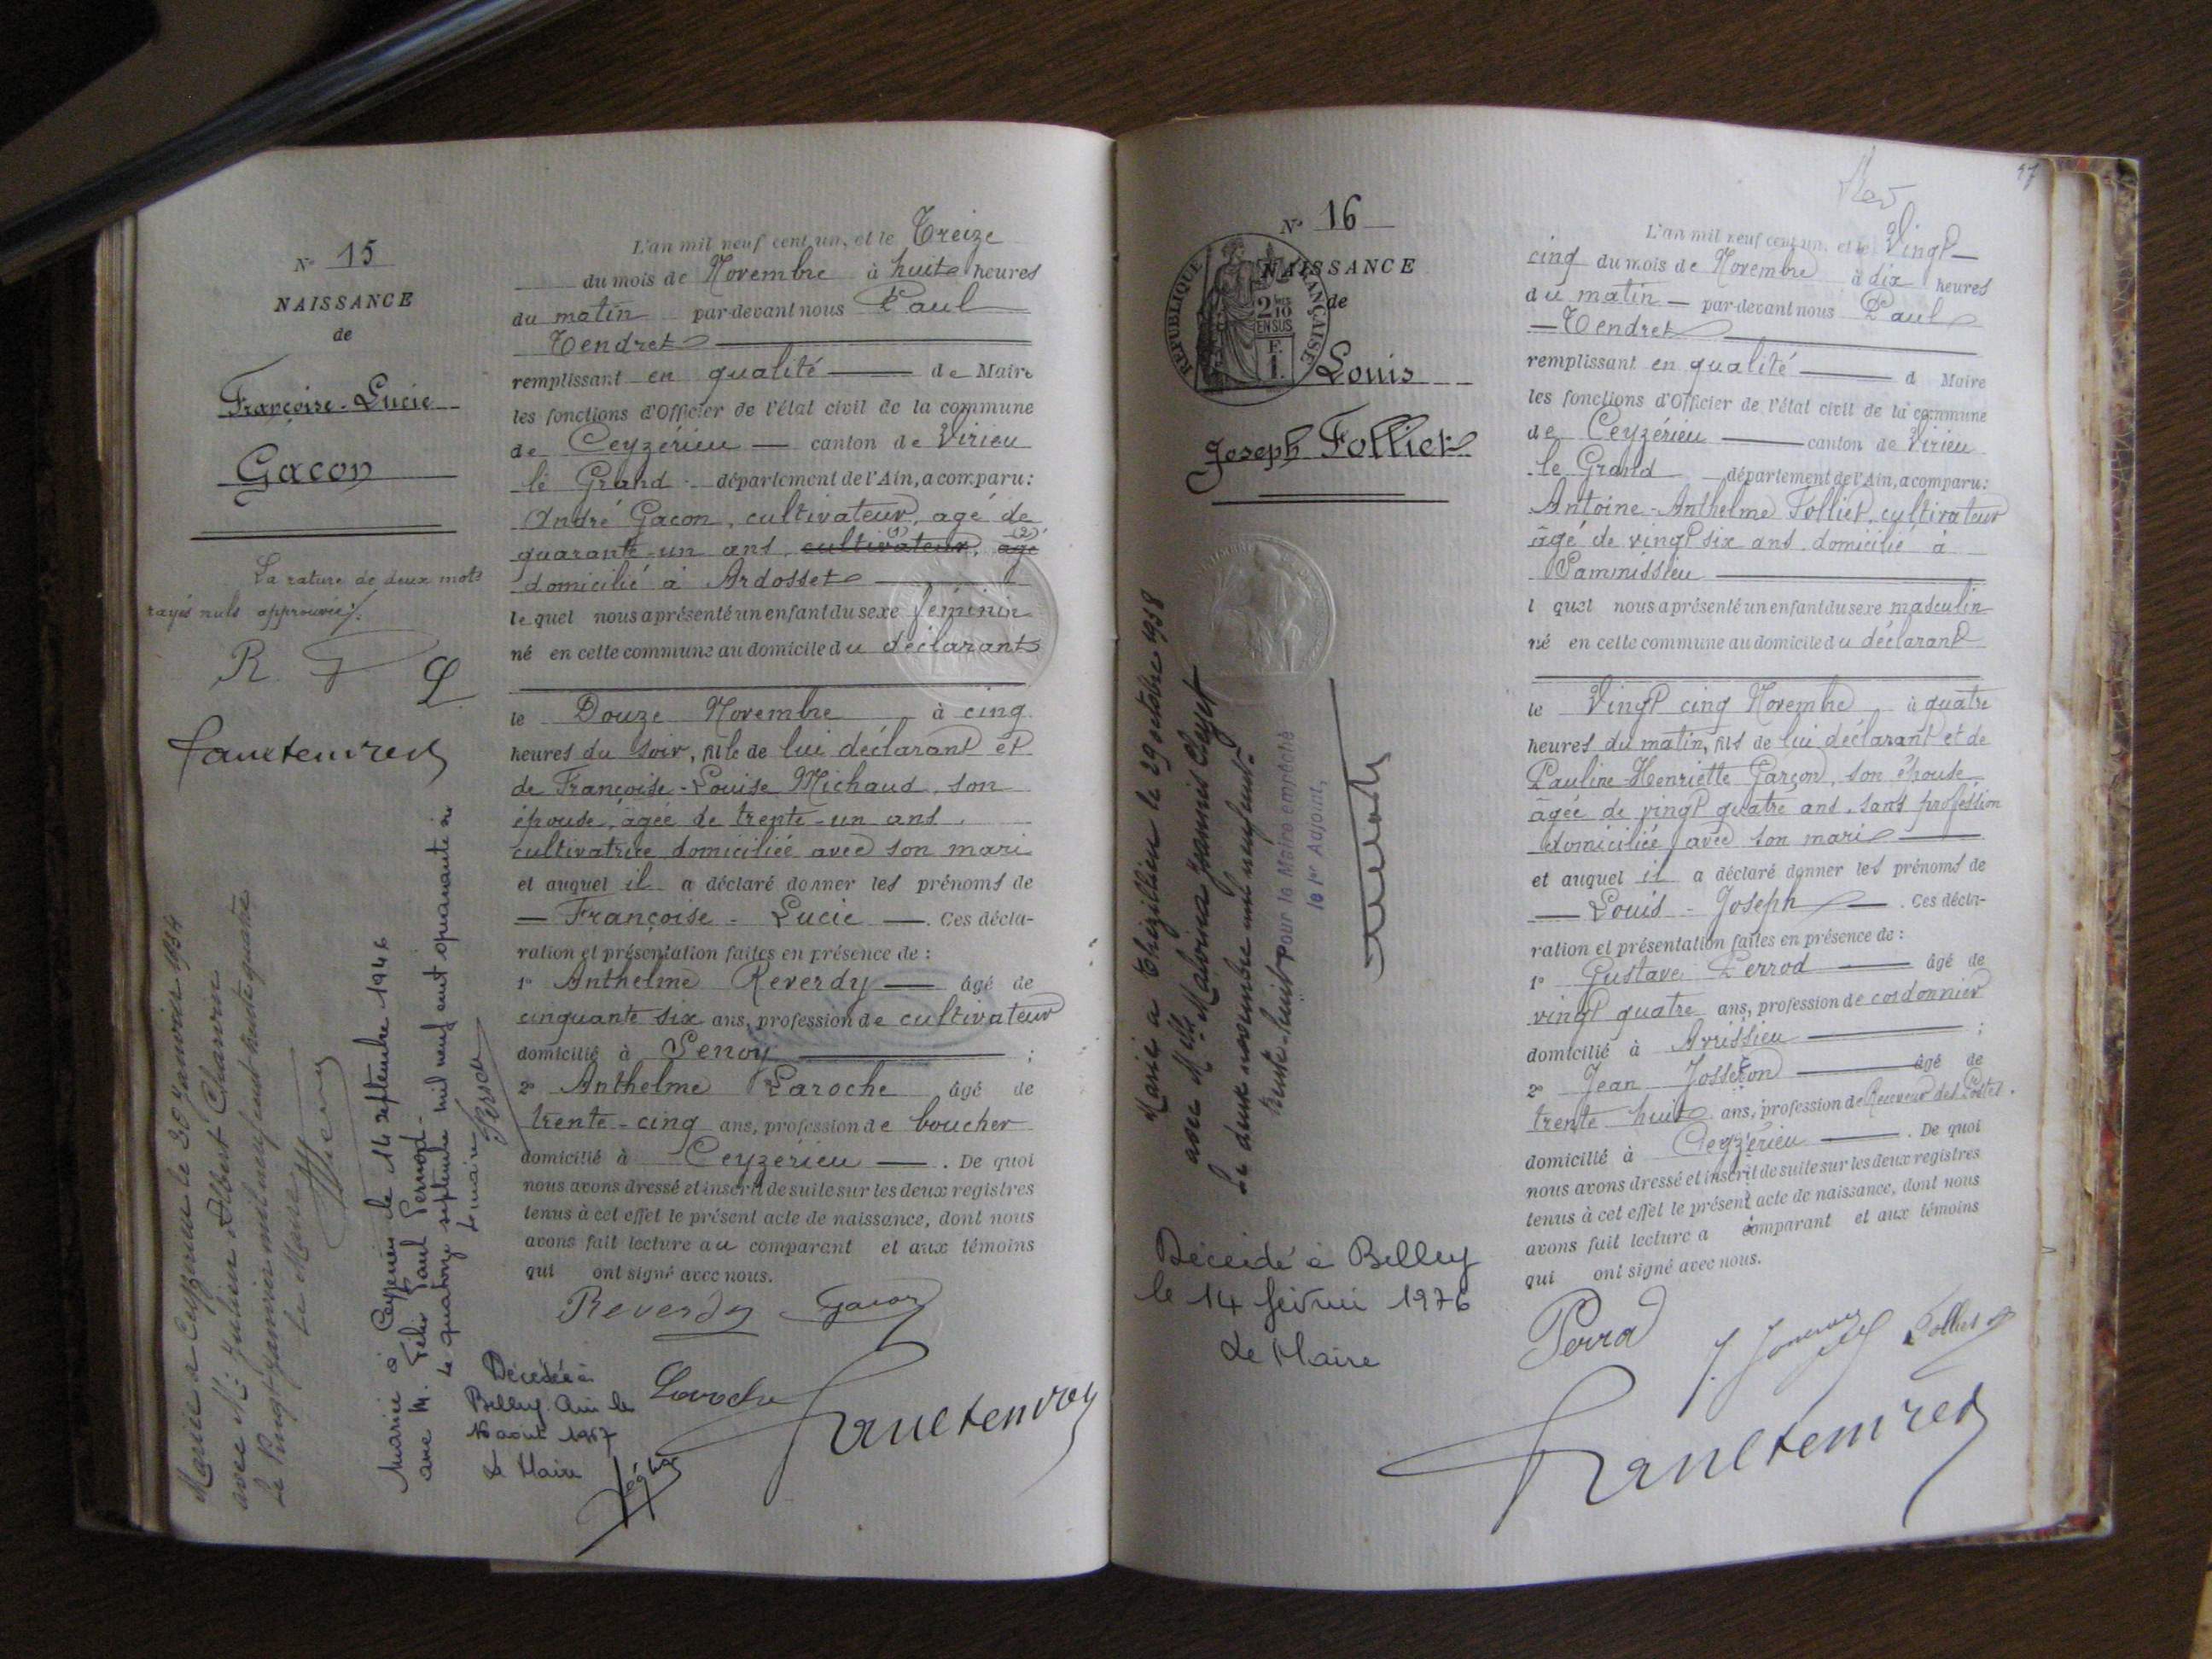 N° 15
NAISSANCE
de
Françoise-Lucie
Gacon
La rature de deux mots
rayés nuls approuvée.
L'an mil neuf cent un, et le Treize
du mois de Novembre à huit heures
du matin par-devant nous Paul
Tendret
remplissant en qualité de Maire
les fonctions d'Officier de l'état civil de la commune
de Ceyzérieu canton de Virieu
le Grand département de l'Ain, a comparu:
André Gacon, cultivateur, agé de
quarante-un ans, cultivateur (1), agé (2)
domicilié à Ardosset
lequel nous a présenté un enfant du sexe féminin
né en cette commune au domicile du déclarant
le Douze Novembre à cinq
heures du soir, fille de lui déclarant et
de Françoise-Louise Michaud, son
épouse, âgée de trente-un ans,
cultivatrice domiciliée avec son mari
et auquel il a déclaré donner les prénoms de
Françoise - Lucie. Ces décla-
ration et présentation faites en présence de :
1° Anthelme Reverdy âgé de
cinquante six ans, profession de cultivateur
domicilié à Senoy ;
2° Anthelme Laroche âgé de
trente-cinq ans, profession de boucher
domicilié à Ceyzérieu. De quoi
nous avons dressé et inscrit de suite sur les deux registres
tenus à cet effet le présent acte de naissance, dont nous
avons fait lecture au comparant et aux témoins
qui ont signé avec nous.
Reverdy Gacon
Laroche
Mariée à Ceyzérieu le 20 janvier 1934
avec M. Julien Albert Charvin
Le Vingt janvier mil neuf cent trente quatre
Le Maire
Mariée à Ceyzérieu le 14 septembre 1946
avec M. Félix Paul Pernod
Le quatorze septembre mil neuf cent quarante six
Le maire
Décédée à
Belley Ain le
16 août 1967
Le Maire
N° 16
NAISSANCE
de
REPUBLIQUE FRANÇAISE
2/10
EN SUS
Louis
Joseph Folliet
Marié à Chézillieu le 29 octobre 1938
avec Melle Malvina Joannis Cleyet
Le deux novembre mil neuf cent
trente-huit
Pour le Maire empêché
le 1er Adjoint,
Décédé à Belley
le 14 février 1976
Le Maire
47
L'an mil neuf cent un, et le Vingt
cinq du mois de Novembre à dix heures
du matin par-devant nous Paul
Tendret
remplissant en qualité d Maire
les fonctions d'Officier de l'état civil de la commune
de Ceyzérieu canton de Virieu
le Grand département de l'Ain, a comparu:
Antoine-Anthelme Folliet, cultivateur
âgé de vingt six ans, domicilié à
Vammissieu
l quel nous a présenté un enfant du sexe masculin
né en cette commune au domicile du déclarant
le Vingt cinq Novembre à quatre
heures du matin, fils de lui déclarant et de
Pauline-Henriette Garçon, son épouse
âgée de vingt quatre ans, sans profession
domiciliée avec son mari
et auquel il a déclaré donner les prénoms de
Louis - Joseph. Ces décla-
ration et présentation faites en présence de :
1° Gustave Perrod âgé de
vingt quatre ans, profession de cordonnier
domicilié à Avrissieu ;
2° Jean âgé de
trente huit ans, profession de Receveur des Postes.
domicilié à Ceyzérieu. De quoi
nous avons dressé et inscrit de suite sur les deux registres
tenus à cet effet le présent acte de naissance, dont nous
avons fait lecture a comparant et aux témoins
qui ont signé avec nous.
Perrod
Folliet